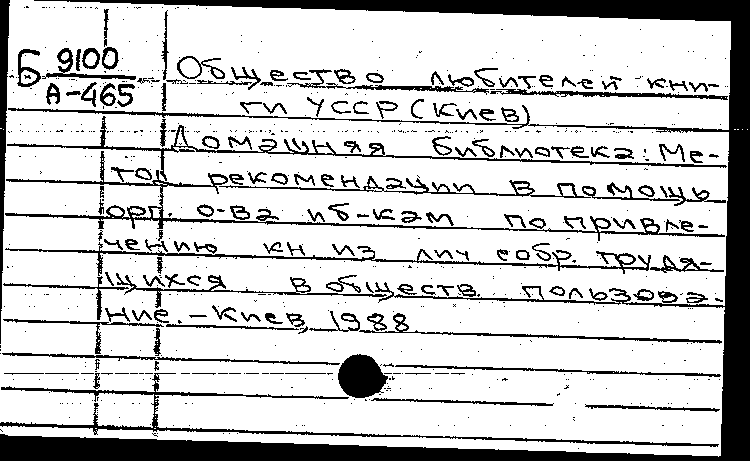 Б 9100
А-465
Общество любителей кни-
ги УССР (Киев)
Домашняя библиотека: Ме-
тод. рекомендации в помощь
орг. о-ва и б-кам по привле-
чению кн. из лич. собр. трудя-
щихся в обществ. пользова-
ние. - Киев, 1988